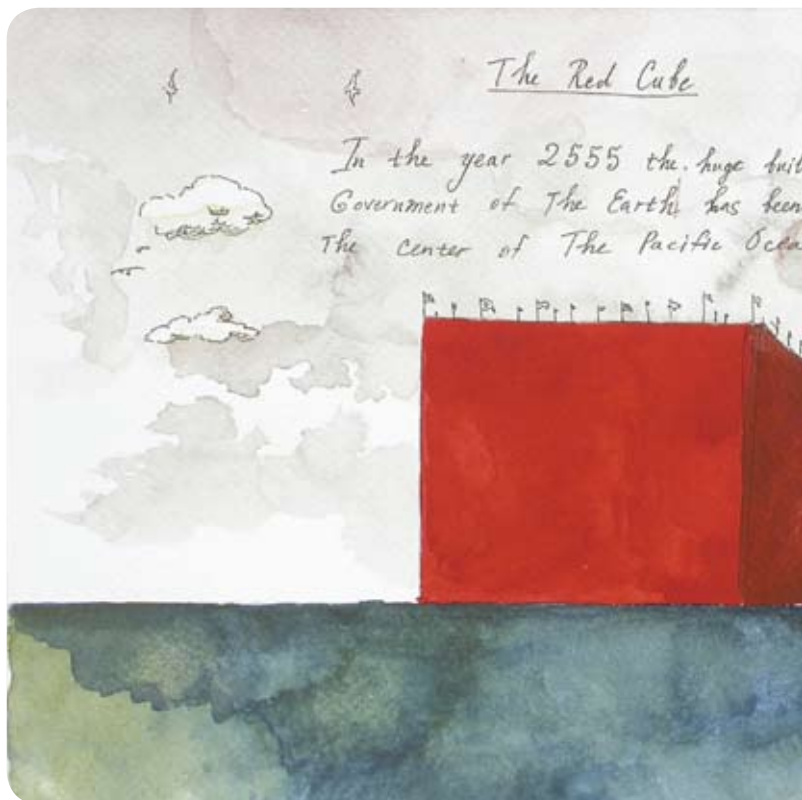 The Red Cube
In the year 2555 the huge buil
Government of The Earth has been
The center of The Pacific Ocea